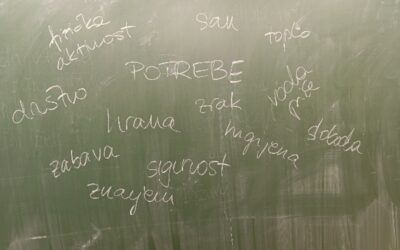 fizička
aktivnost
san
toplo
POTREBE
društvo
voda
piće
hrana
zrak
higijena
sloboda
zabava
sigurnost
znanjem